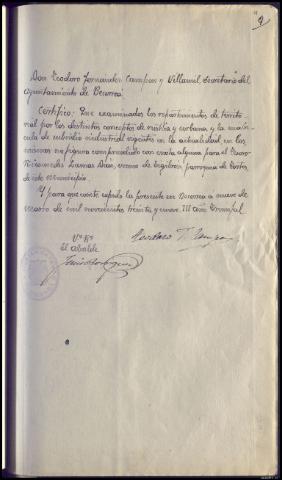 Don Teodoro Fernandez Campoa y Villamil Secretario del
Ayuntamiento de Becerrea.
Certifico: Que examinados los repartimientos de territo-
rial por los distintos conceptos de rustica y urbana y la matri-
cula de subsidio industrial vigentes en la actualidad, en los
mismos no figura comprendido con cuota alguna para el Tesoro
vecino de parroquia de
de este Municipio.
Y para que conste expido la presente en Becerrea a nueve de
Marzo de mil novecientos treinta y nueve. III Año Triunfal.
Vº Bº
El Alcalde
Teodoro F. Campoa